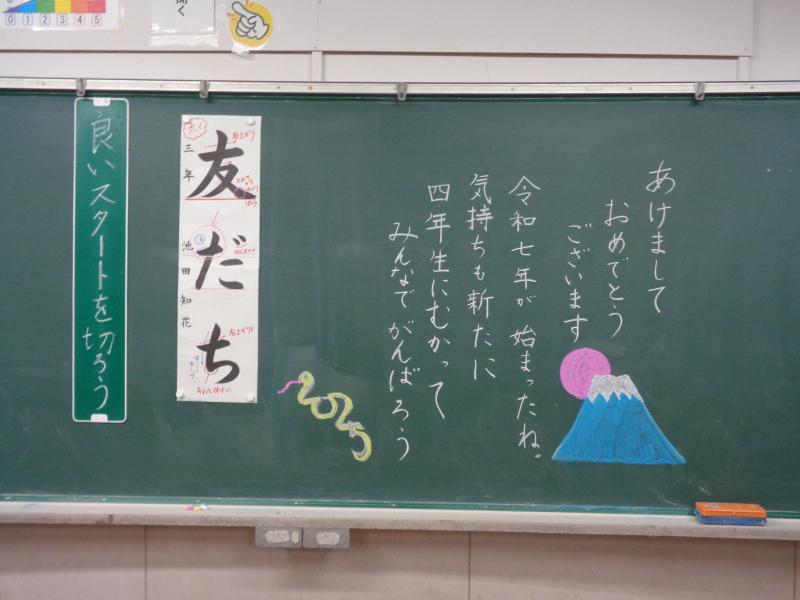 0 1 2 3 4 5
聞く
あけまして
おめでとう
ございます
令和七年が始まったね。
気持ちも新たに
四年生にむかって
みんなでがんばろう
2025
友だち
三年 池田知花
右上がり
右上がり
良いスタートを切ろう